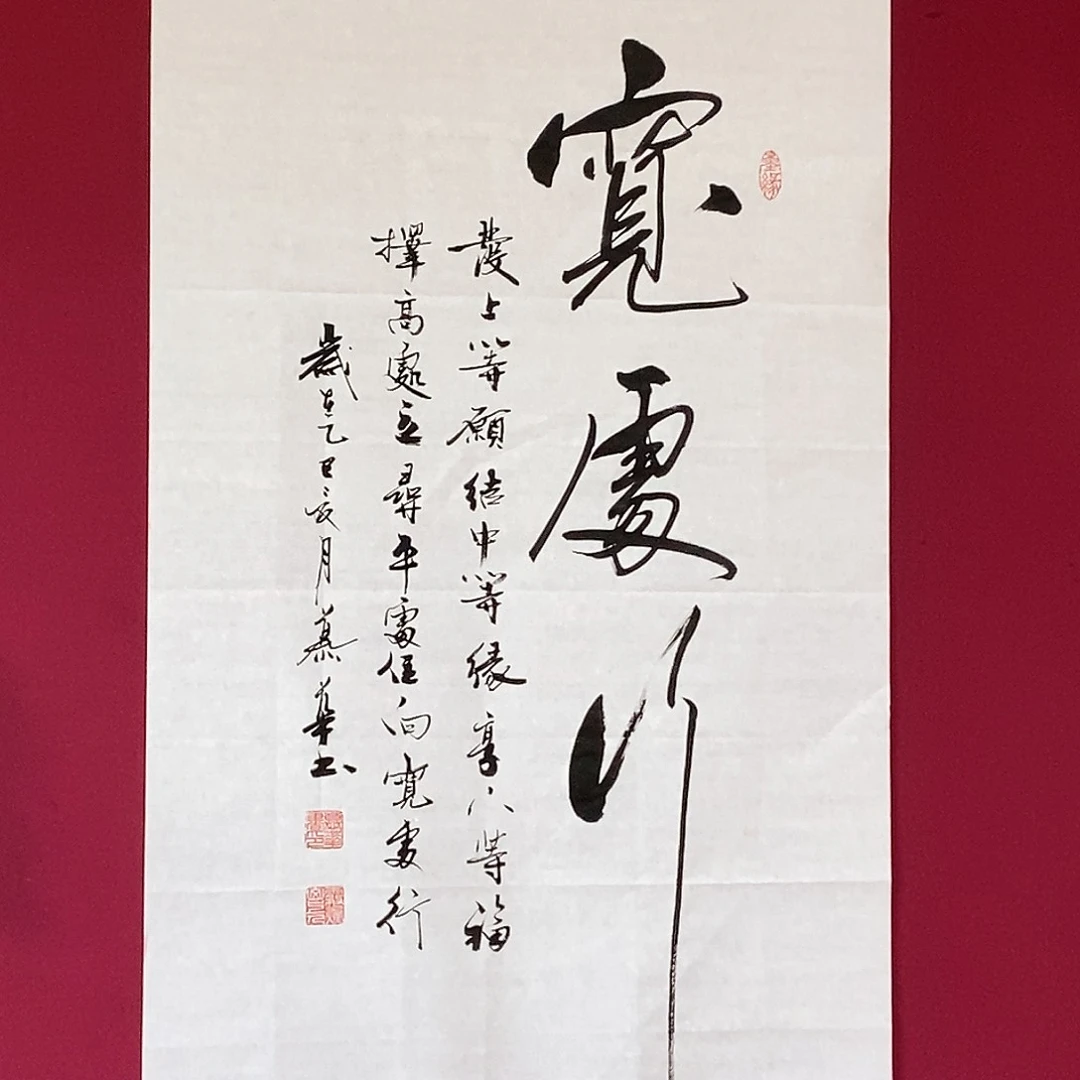 寬處行
發上等願結中等緣享下等福
擇高處立尋平處住向寬處行
歲在乙巳亥月慕華書
墨緣